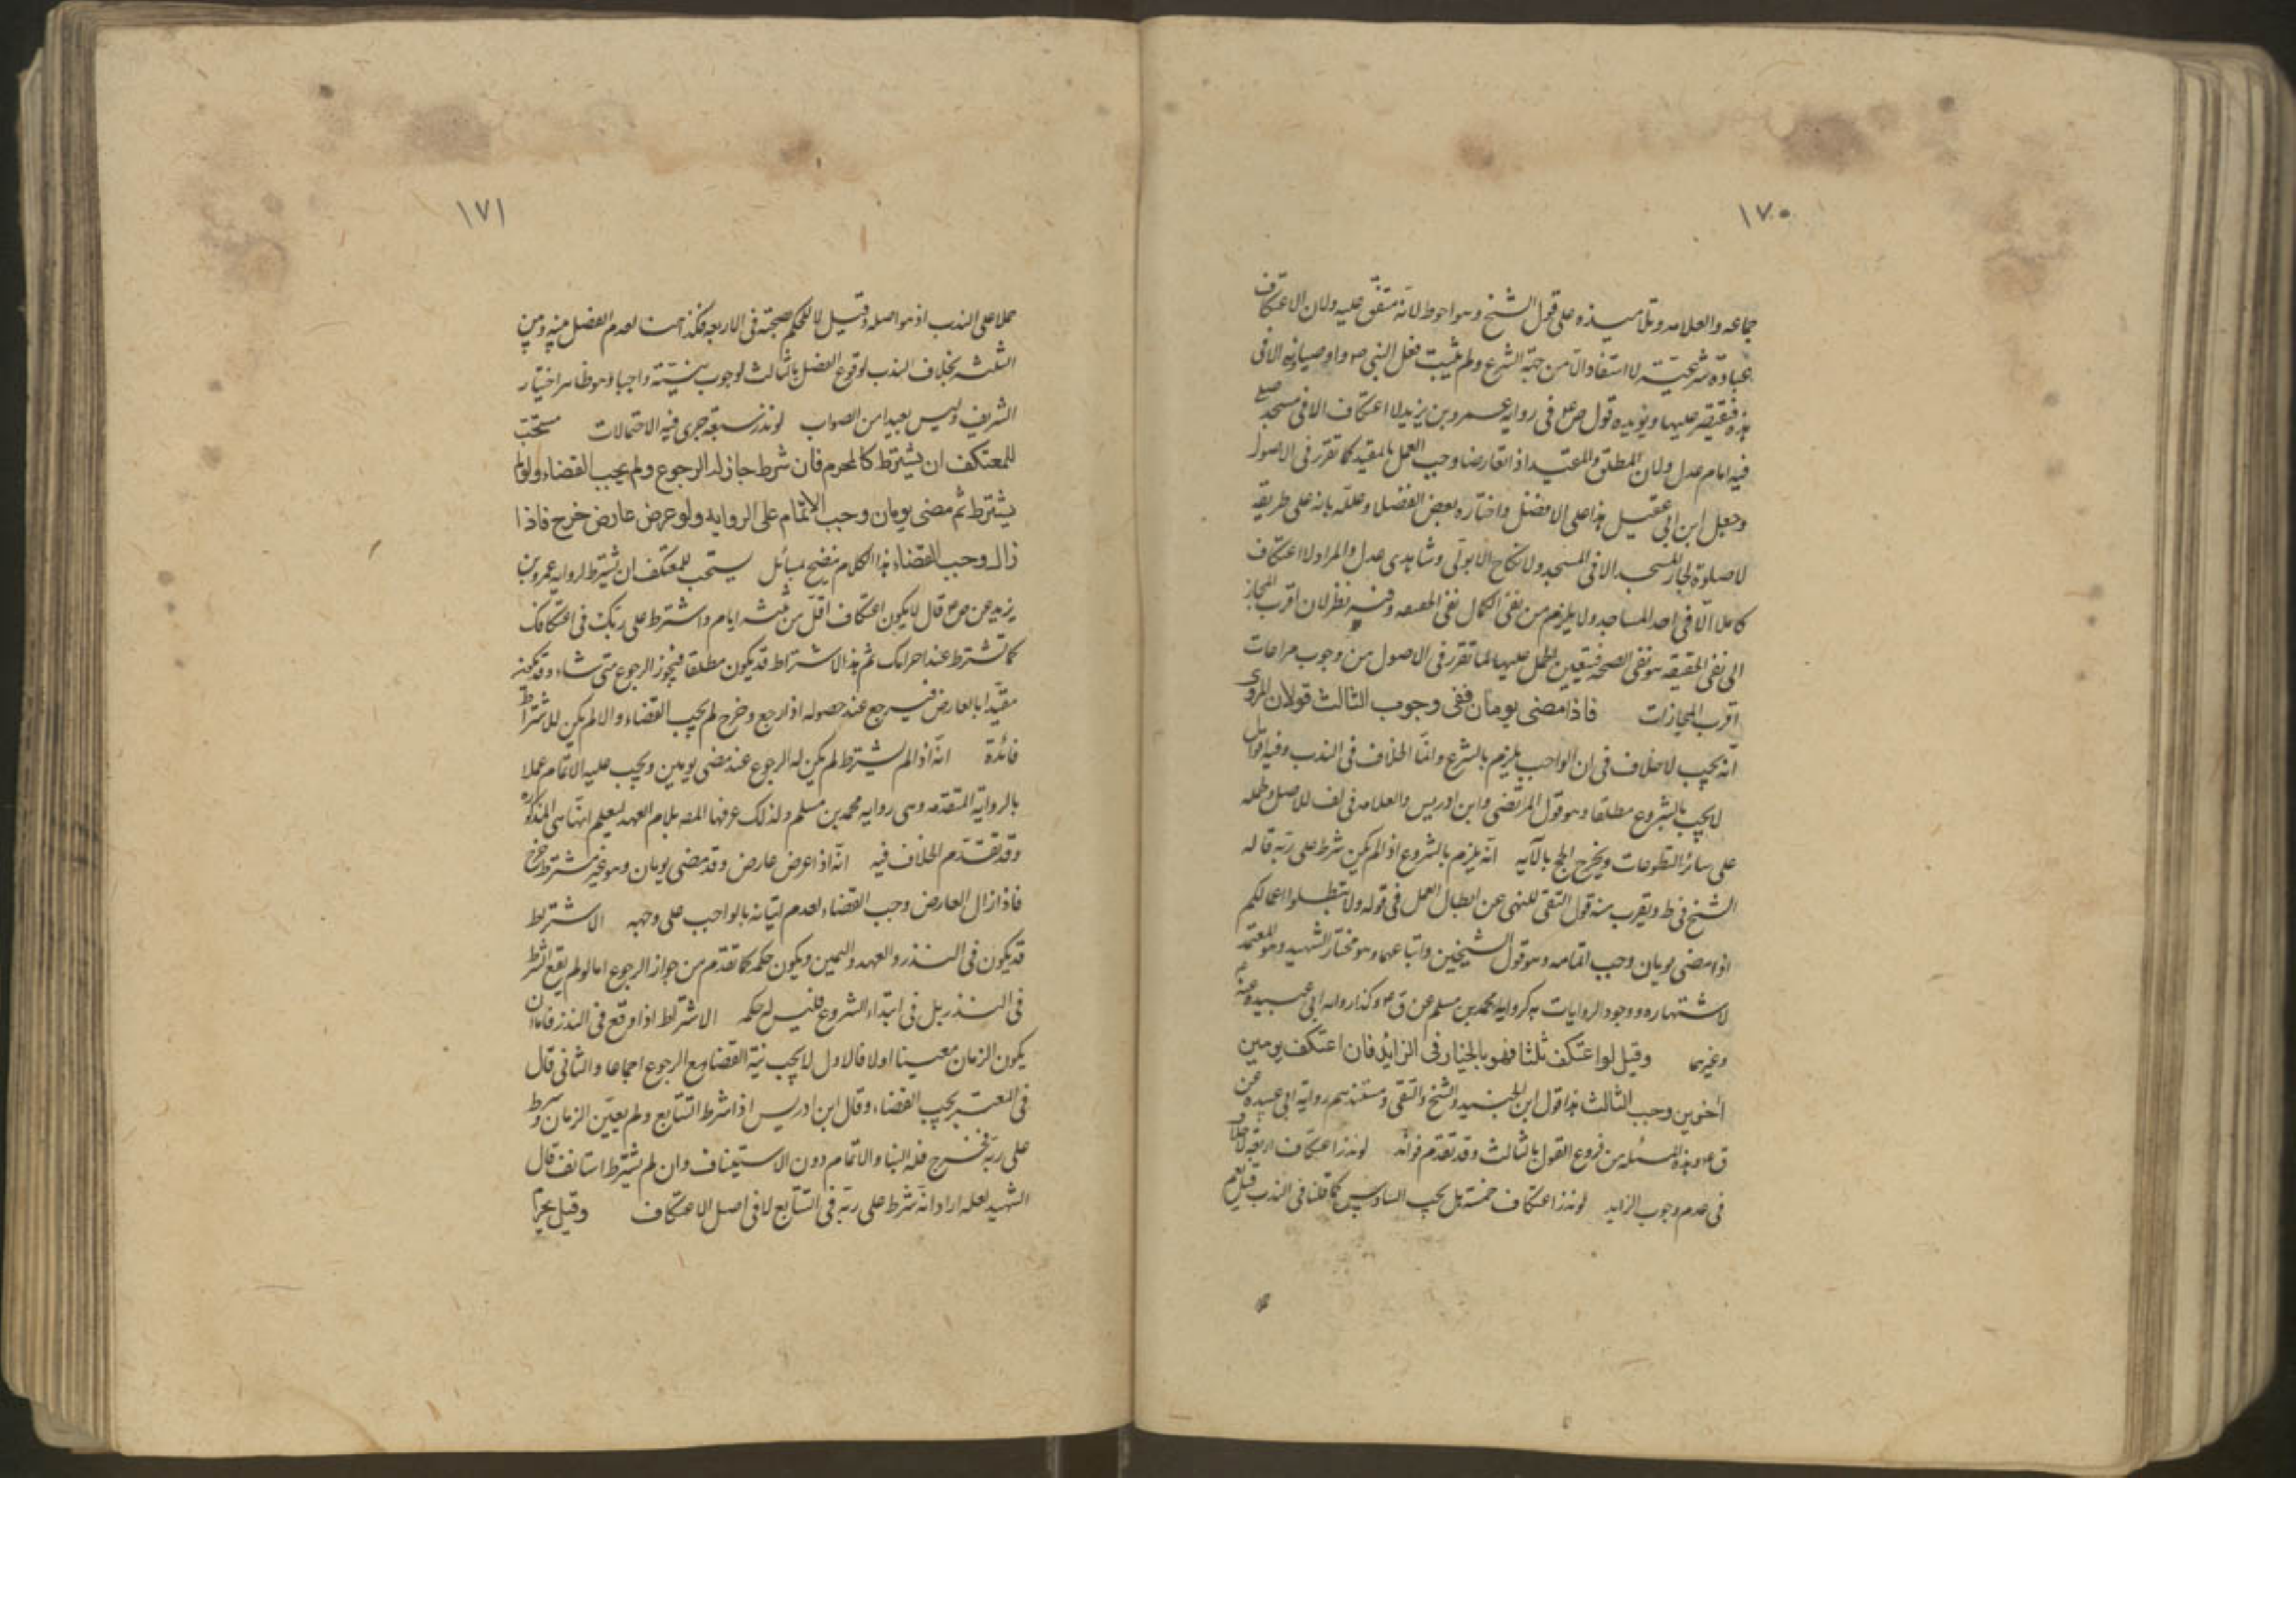 ١٧٠
جماعه والعلامه وتلاميذه على قول الشيخ وهو احوط لانه متفق عليه ولان الاعتكاف
عبادة شرعية لا استفاد الا من جهة الشرع ولم يثبت فعل النبي ص واوصيائه الا في
هذه فيقتصر عليها ويؤيده قول ص ع في رواية عمرو بن يزيد لا اعتكاف الا في مسجد صلى
فيه امام عدل ولان المطلق والمقيد اذا تعارضا وجب العمل بالمقيد كما تقرر في الاصول
وجعل ابن ابي عقيل هذا على الافضل واختاره بعض الفضلا وعلله بانه على طريقه
لا صلوة لجار المسجد الا في المسجد ولا نكاح الا بولى وشاهدى عدل والمراد لا اعتكاف
كاملا الا في احد المساجد ولا يلزم من نفى الكمال نفى الصحه وفيه نظر لان اقرب المجاز
الى نفى الحقيقه هو نفى الصحه فيتعين الحمل عليها لما تقرر في الاصول من وجوب مراعات
اقرب المجازات فاذا مضى يومان ففى وجوب الثالث قولان المروى
انه يجب لا خلاف في ان الواجب يلزم بالشرع وانما الخلاف في الندب وفيه اقوال
لا يجب بالشروع مطلقا وهو قول المرتضى وابن ادريس والعلامه في لف للاصل وحمله
على سائر التطوعات ويخرج الحج بالآيه انه يلزم بالشروع اذا لم يكن شرط على ربه قاله
الشيخ في ط ويقرب منه قول التقى للنهى عن ابطال العمل في قوله ولا تبطلوا اعمالكم
اذا مضى يومان وجب اتمامه وهو قول الشيخين واتباعهما وهو مختار الشهيد وهو المعتمد
لاشتهاره ووجود الروايات به كرواية محمد بن مسلم عن ق ع وكذا رواية ابى عبيده عنه
وغيرهما وقيل لو اعتكف ثلثا فهو بالخيار في الزايد فان اعتكف يومين
اخرين وجب الثالث هذا قول ابن الجنيد والشيخ والتقى ومستندهم رواية ابى عبيده عن
ق ع وهذه المسئله من فروع القول بالثالث وقد تقدم فوائد لو نذر اعتكاف اربعة
في عدم وجوب الزايد لو نذر اعتكاف خمسة هل يجب السادس كما قلنا في الندب قيل نعم
١٧١
حملا على الندب اذ هو اصله وقيل لا للحكم بصحته في الاربعه فكذا هنا لعدم الفصل بينه وبين
الثلثه بخلاف الندب لوقوع الفصل بالثالث لوجوب نيته واجبا وهو ظاهر اختيار
الشريف وليس بعيدا من الصواب لو نذر سبعة جرى فيه الاحتمالات مستحب
للمعتكف ان يشترط كالمحرم فان شرط جاز له الرجوع ولم يجب القضاء ولو لم
يشترط ثم مضى يومان وجب الاتمام على الروايه ولو عرض عارض خرج فاذا
زال وجب القضاء هذا الكلام يتضح بمسائل يستحب للمعتكف ان يشترط لرواية عمرو بن
يزيد عن ص ع قال لا يكون اعتكاف اقل من ثلثه ايام واشترط على ربك في اعتكافك
كما تشترط عند احرامك ثم هذا الاشتراط قد يكون مطلقا فيجوز الرجوع متى شاء وقد يكون
مقيدا بالعارض فيرجع عند حصوله اذا رجع وخرج لم يجب القضاء والا لم يكن للاشتراط
فائدة انه اذا لم يشترط لم يكن له الرجوع عند مضى يومين ويجب عليه الاتمام عملا
بالرواية المتقدمه وهى رواية محمد بن مسلم ولذلك عرفها المص بلام العهد ليعلم انها هى المذكوره
وقد تقدم الخلاف فيه انه اذا عرض عارض وقد مضى يومان وهو غير مشترط خرج
فاذا زال العارض وجب القضاء لعدم اتيانه بالواجب على وجهه الاشتراط
قد يكون في النذر والعهد واليمين ويكون حكمه كما تقدم من جواز الرجوع اما لو لم يقع الشرط
في النذر بل في ابتداء الشروع فليس له حكمه الاشتراط اذا وقع في النذر فاما ان
يكون الزمان معينا اولا فالاول لا يجب نية القضا مع الرجوع اجماعا والثانى قال
في المعتبر يجب القضاء وقال ابن ادريس اذا شرط التتابع ولم يعين الزمان وشرط
على ربه فخرج فله البنا والاتمام دون الاستيناف وان لم يشترط استانف قال
الشهيد لعله اراد انه شرط على ربه في التتابع لا في اصل الاعتكاف وقيل يحرم